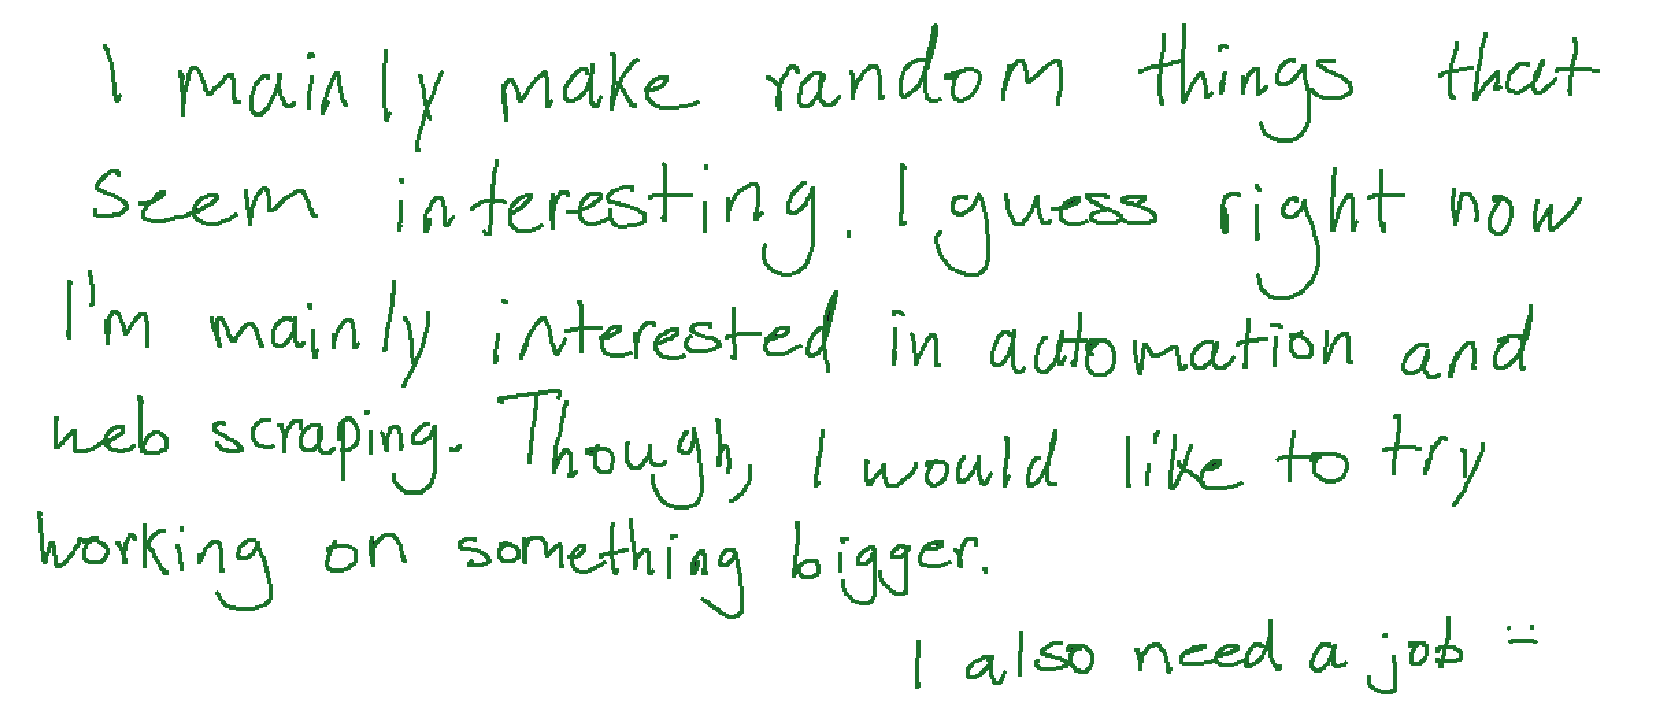 I mainly make random things that
seem interesting. I guess right now
I'm mainly interested in automation and
web scraping. Though, I would like to try
working on something bigger.
I also need a job :|